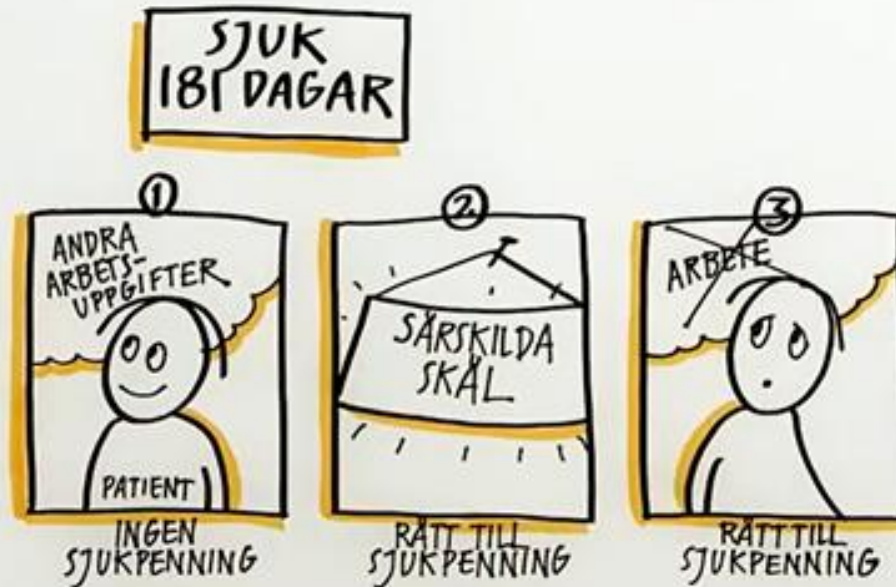 SJUK
181 DAGAR
1
ANDRA
ARBETS-
UPPGIFTER
PATIENT
INGEN
SJUKPENNING
2
SÄRSKILDA
SKÄL
RÄTT TILL
SJUKPENNING
3
ARBETE
RÄTT TILL
SJUKPENNING